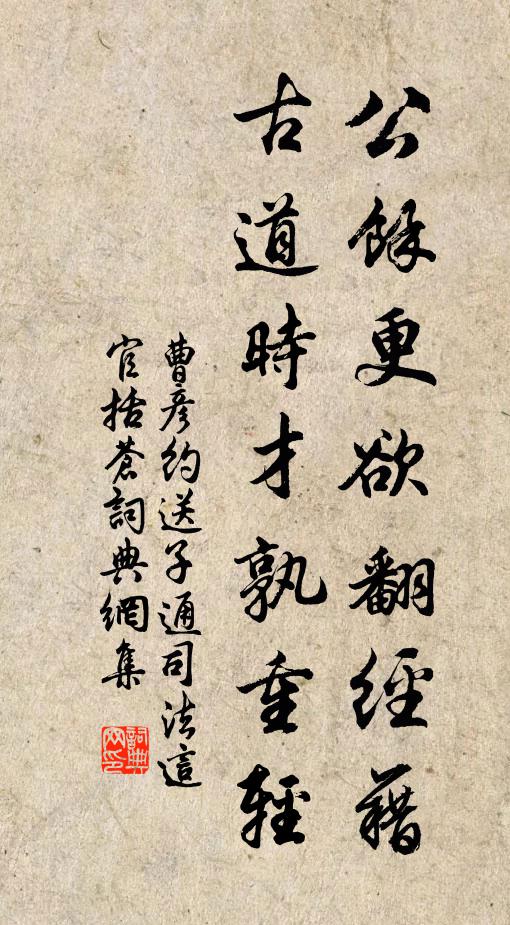 公餘更欲翻經藉
古道時才孰重輕
曹彦約送子通司法這
官括蒼詞典網集
詞典網印